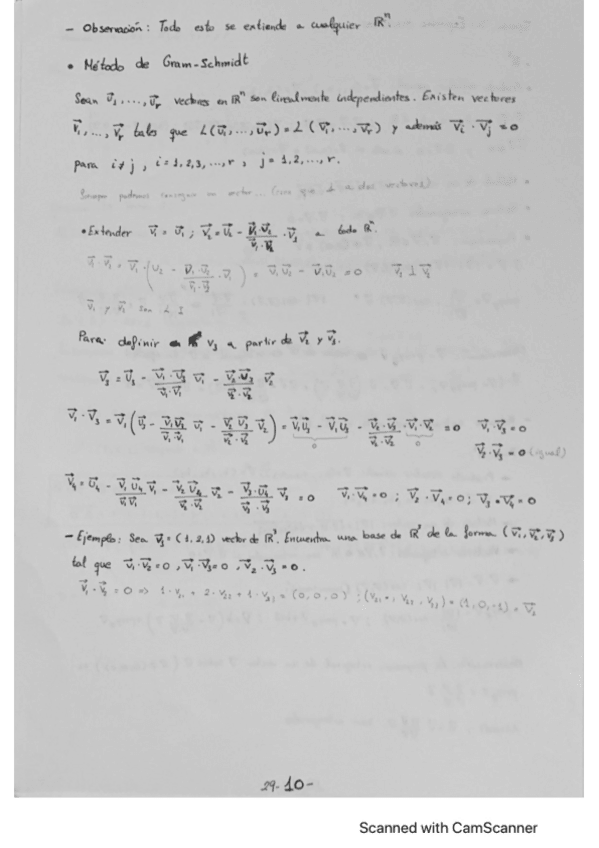 - Observación: Todo esto se extiende a cualquier ℝⁿ.
• Método de Gram-Schmidt
Sean u⃗₁, ..., u⃗ᵣ vectores en ℝⁿ son linealmente independientes. Existen vectores
v⃗₁, ..., v⃗ᵣ tales que L(u⃗₁, ..., u⃗ᵣ) = L(v⃗₁, ..., v⃗ᵣ) y además v⃗ᵢ · v⃗ⱼ = 0
para i ≠ j, i = 1, 2, 3, ..., r, j = 1, 2, ..., r.
• Extender v⃗₁ = u⃗₁ ; v⃗₂ = u⃗₂ - (v⃗₁·u⃗₂)/(v⃗₁·v⃗₁) · v⃗₁ a todo ℝⁿ.
v⃗₁·v⃗₂ = v⃗₁·(u⃗₂ - (v⃗₁·u⃗₂)/(v⃗₁·v⃗₁) · v⃗₁) = v⃗₁u⃗₂ - v⃗₁u⃗₂ = 0 v⃗₁ ⊥ v⃗₂
Para definir v₃ a partir de
v⃗₃ = u⃗₃ - (v⃗₁·u⃗₃)/(v⃗₁·v⃗₁) v⃗₁ - (v⃗₂·u⃗₃)/(v⃗₂·v⃗₂) v⃗₂
v⃗₁·v⃗₃ = v⃗₁(u⃗₃ - (v⃗₁u⃗₃)/(v⃗₁·v⃗₁) v⃗₁ - (v⃗₂u⃗₃)/(v⃗₂·v⃗₂) v⃗₂) = v⃗₁u⃗₃ - v⃗₁u⃗₃ - (v⃗₂·u⃗₃)/(v⃗₂·v⃗₂) · v⃗₁·v⃗₂ = 0 v⃗₁·v⃗₃ = 0
0 0
v⃗₂·v⃗₃ = 0 (igual)
v⃗₄ = u⃗₄ - (v⃗₁u⃗₄)/(v⃗₁v⃗₁) v⃗₁ - (v⃗₂u⃗₄)/(v⃗₂·v⃗₂) v⃗₂ - (v⃗₃·u⃗₄)/(v⃗₃·v⃗₃) v⃗₃ = 0 v⃗₁·v⃗₄ = 0 ; v⃗₂·v⃗₄ = 0 ; v⃗₃·v⃗₄ = 0
- Ejemplo: Sea = (1, 2, 1) vector de ℝ³. Encuentra una base de ℝ³ de la forma (v⃗₁, v⃗₂, v⃗₃)
tal que v⃗₁·v⃗₂ = 0, v⃗₁·v⃗₃ = 0, v⃗₂·v⃗₃ = 0.
29-10-
Scanned with CamScanner